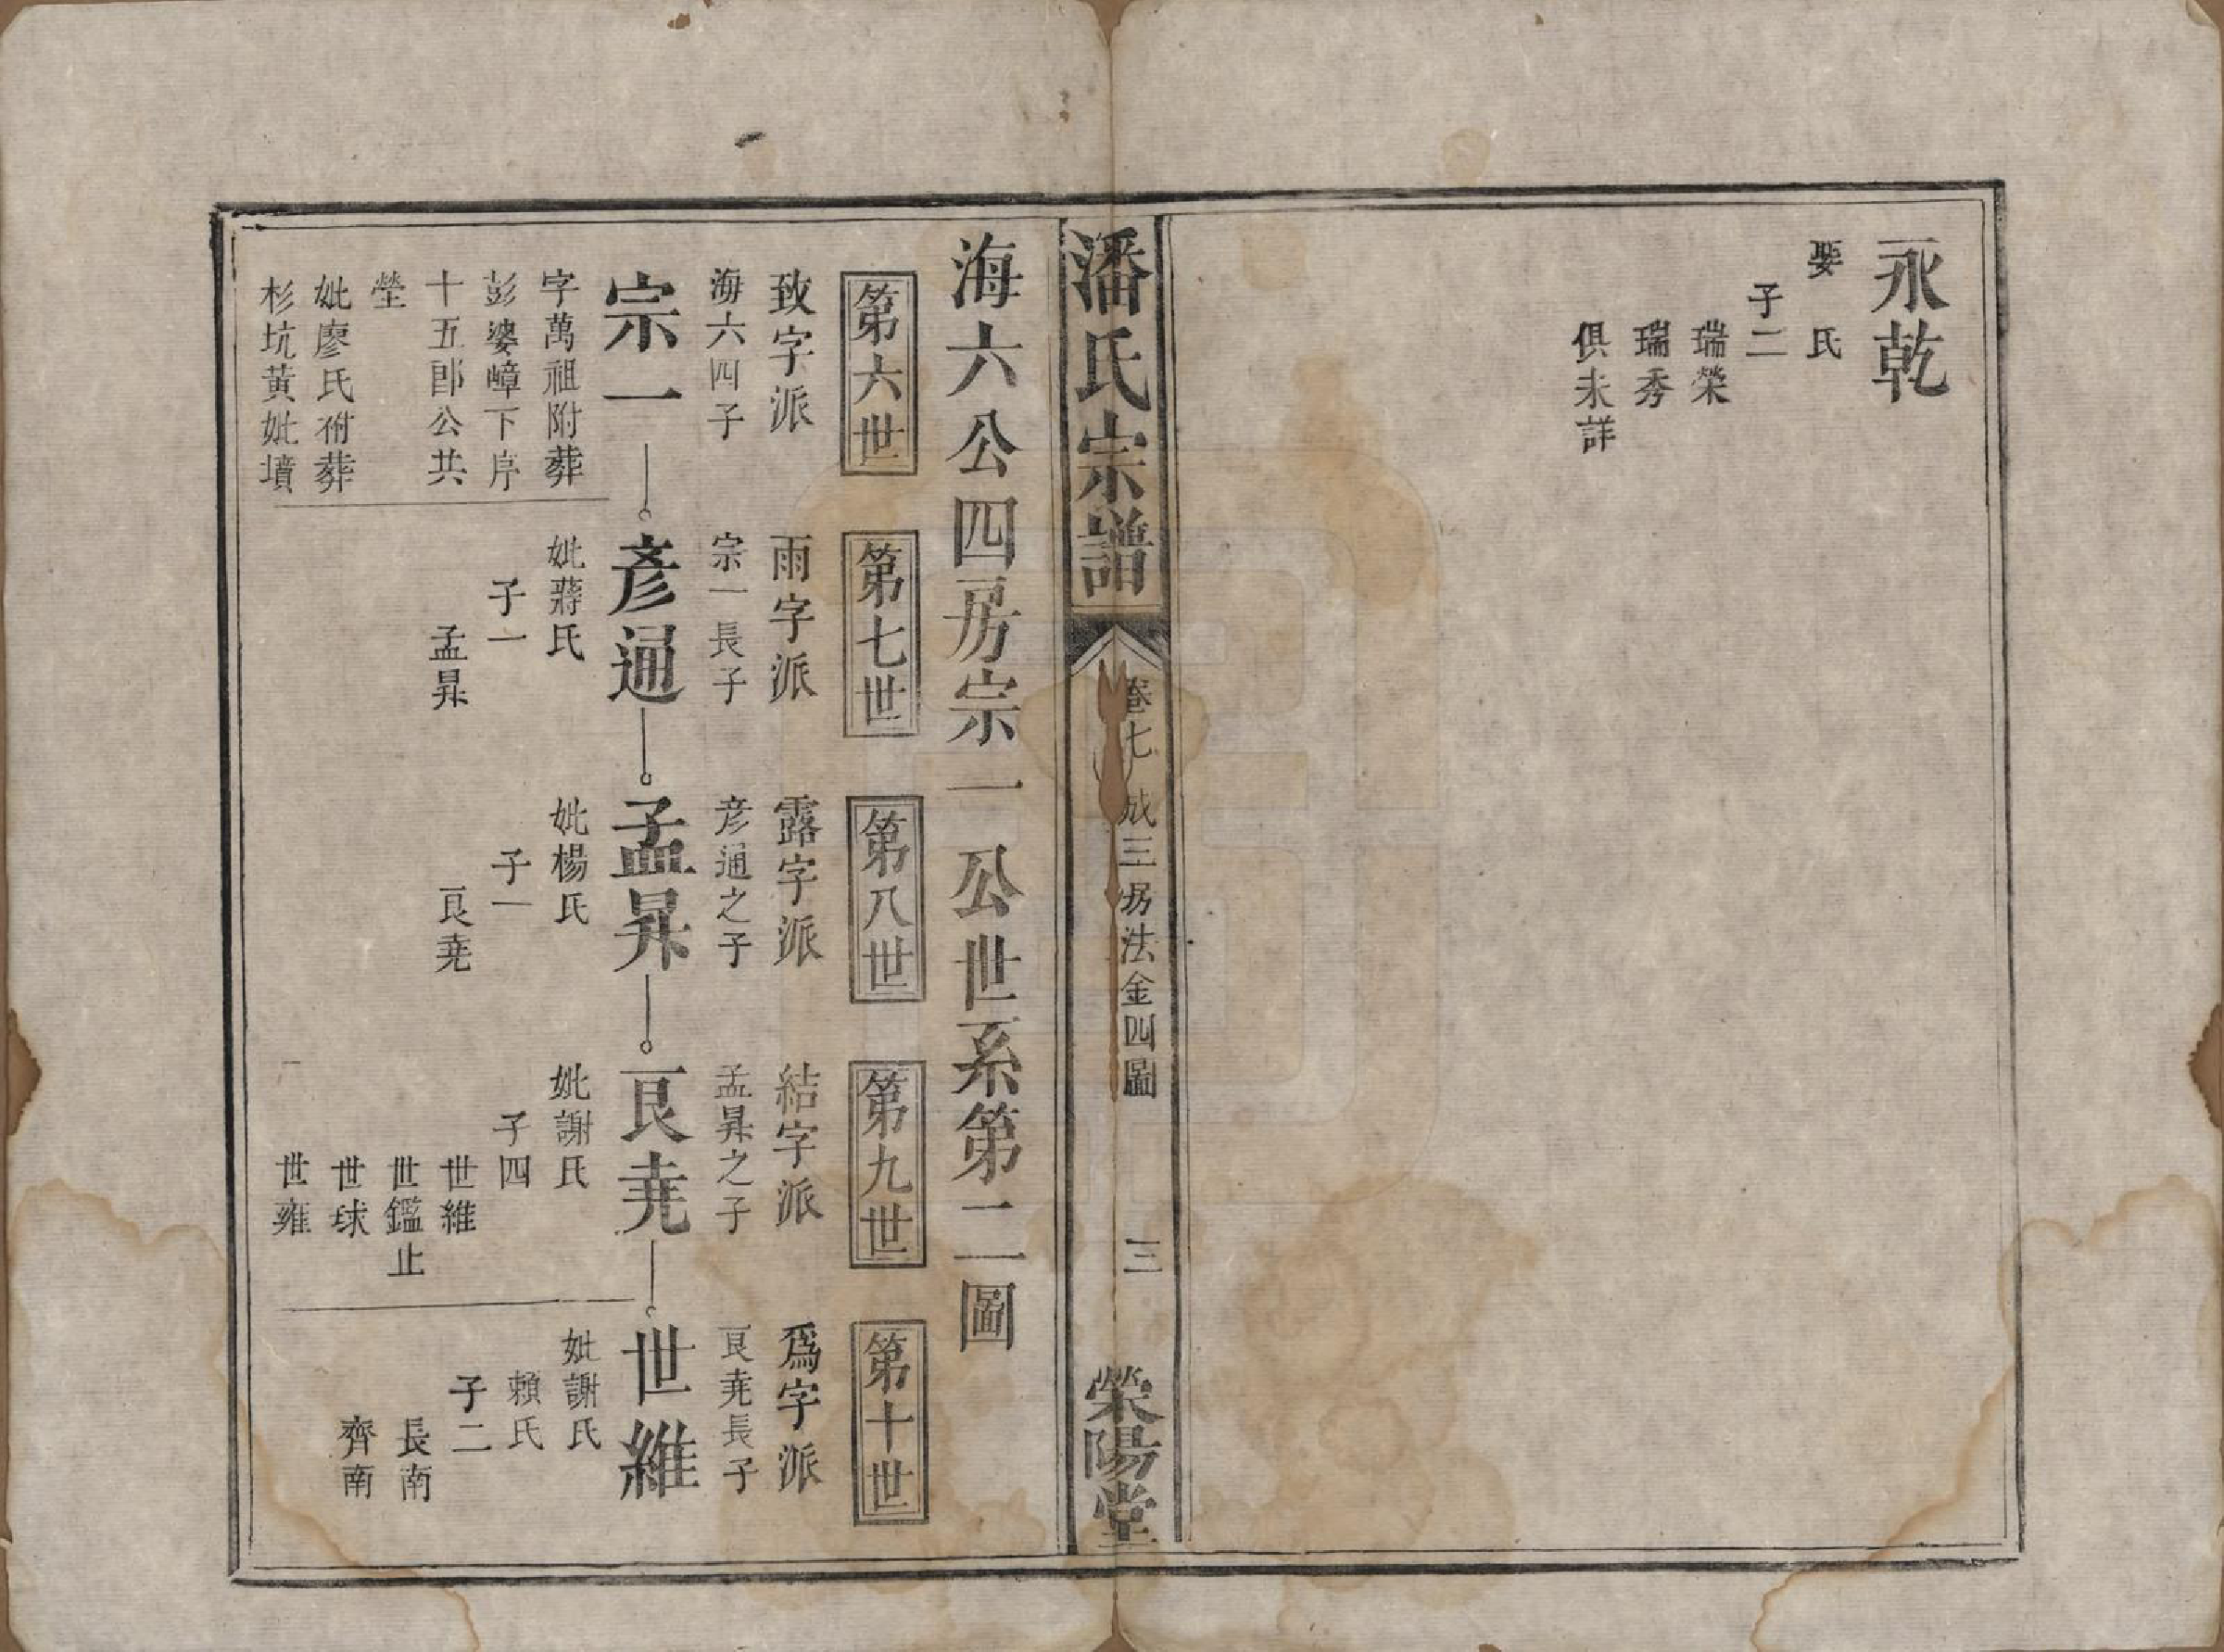 永乾
娶　氏
子二
瑞榮
瑞秀
俱未詳
潘氏宗譜
卷七　成三房法金四圖
三
榮陽堂
海六公四房宗一公世系第二圖
第六世
致字派
海六四子
宗一
字萬祖附葬
彭婆嶂下序
十五郎公共
塋
妣廖氏祔葬
杉坑黃妣墳
第七世
雨字派
宗一長子
彥通
妣蔣氏
子一
孟昇
第八世
露字派
彥通之子
孟昇
妣楊氏
子一
艮尭
第九世
結字派
孟昇之子
艮尭
妣謝氏
子四
世維
世鑑止
世球
世雍
第十世
爲字派
艮尭長子
世維
妣謝氏
賴氏
子二
長南
齊南